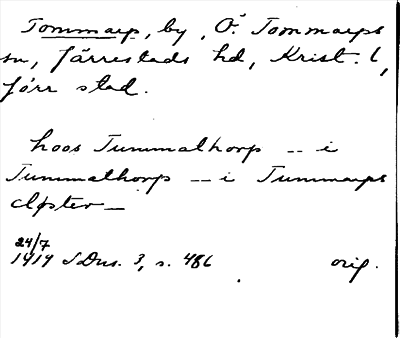 Tommarp, by, Ö. Tommarps
sn, Järrestads hd, Krist. l,
förr stad.
hoos Tummathorp -- i
Tummathorp -- i Tummarps
cløster —
24/7
1419 SDns. 3, s. 486 orig.